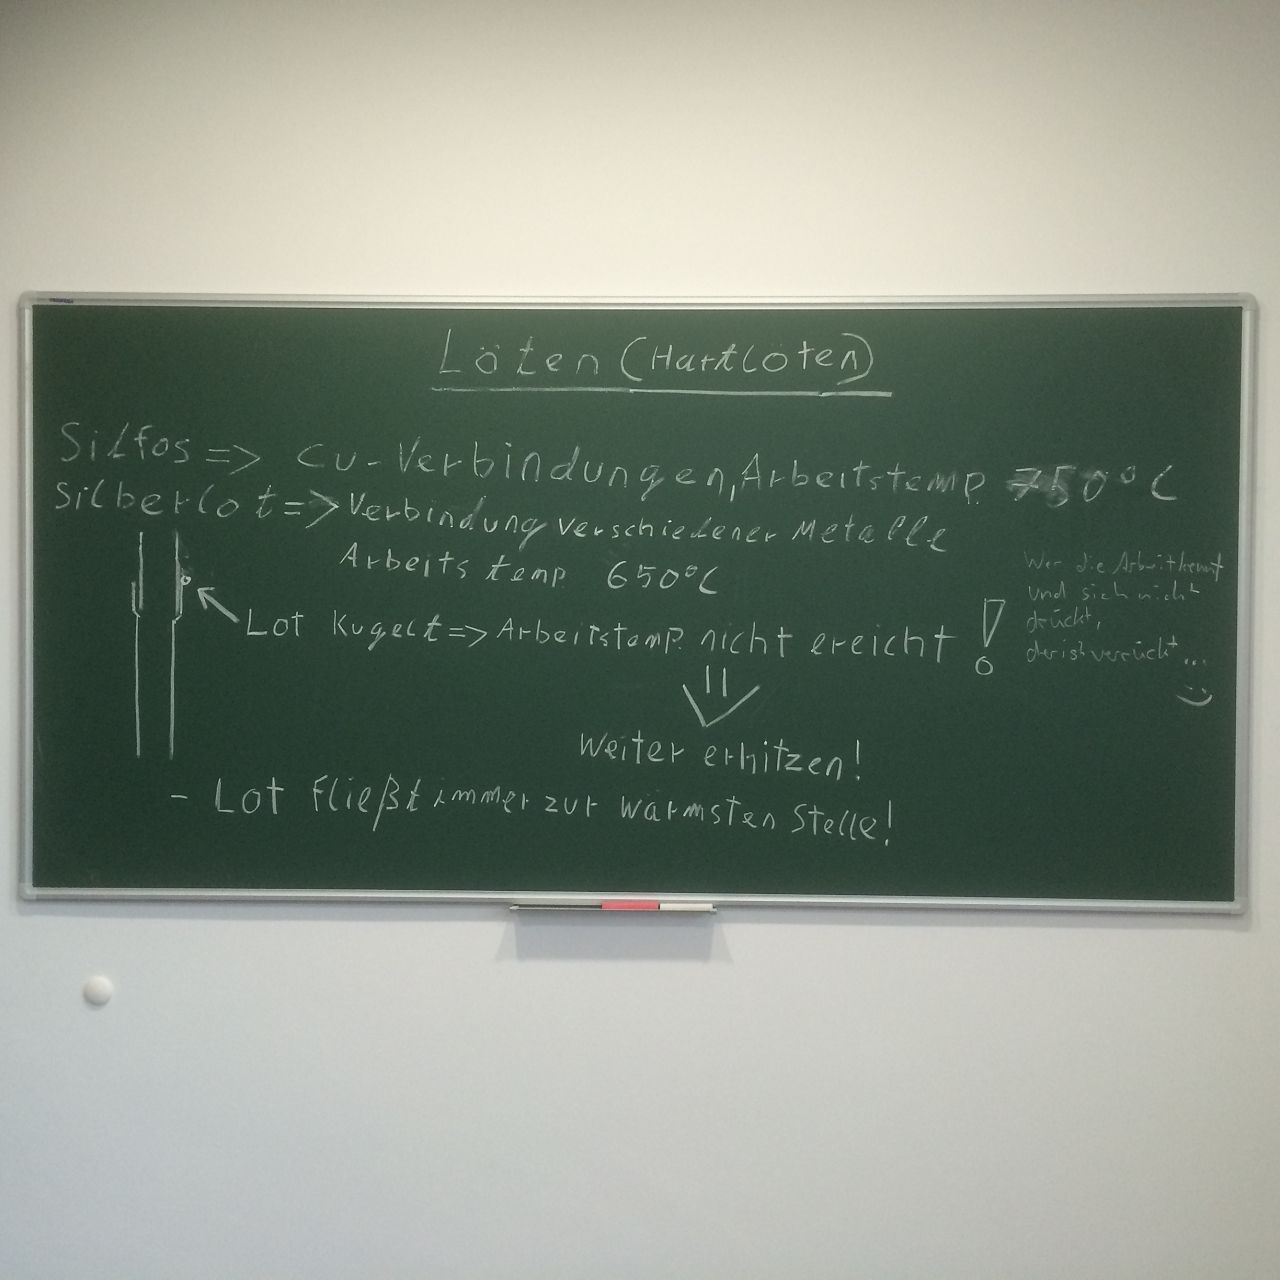 Löten (Hartlöten)
Silfos => Cu-Verbindungen, Arbeitstemp. 750°C
Silberlot => Verbindung verschiedener Metalle
Arbeitstemp. 650°C
Lot Kugelt => Arbeitstemp. nicht ereicht !
Weiter erhitzen!
- Lot fließt immer zur wärmsten Stelle!
Wer die Arbeit kennt
und sich nicht
drückt,
der ist verrückt...